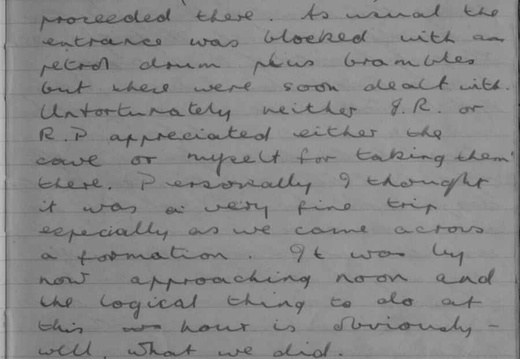 proceeded there. As usual the
entrance was blocked with an
petrol drum plus brambles
but these were soon dealt with.
Unfortunately neither J.R. or
R.P appreciated either the
cave or myself for taking them
there. Personally I thought
it was a very fine trip
especially as we came across
a formation. It was by
now approaching noon and
the logical thing to do at
this hour is obviously -
well, what we did.